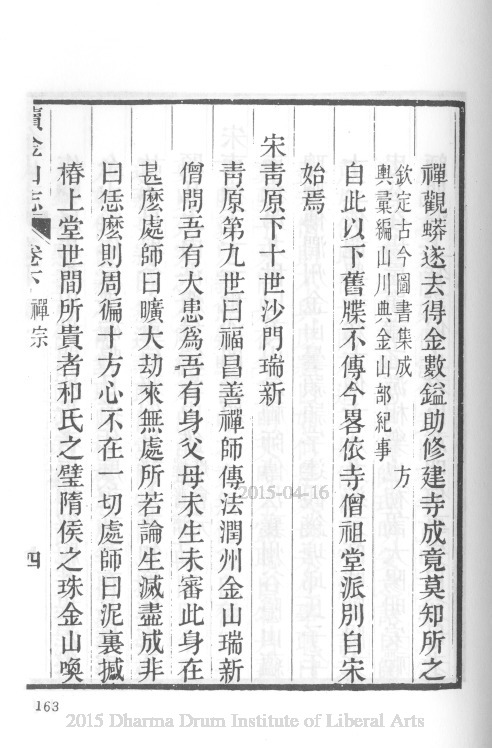 禪觀蟒遂去得金數鎰助修建寺成竟莫知所之
欽定古今圖書集成　方
輿彙編山川典金山部紀事
自此以下舊牒不傳今畧依寺僧祖堂派別自宋
始焉
宋靑原下十世沙門瑞新
靑原第九世曰福昌善禪師傳法潤州金山瑞新
僧問吾有大患爲吾有身父母未生未審此身在
甚麽處師曰曠大劫來無處所若論生滅盡成非
曰恁麽則周徧十方心不在一切處師曰泥裏撼
椿上堂世間所貴者和氏之璧隋侯之珠金山喚
續金山志 卷下 禪宗
四
2015-04-16
163
2015 Dharma Drum Institute of Liberal Arts